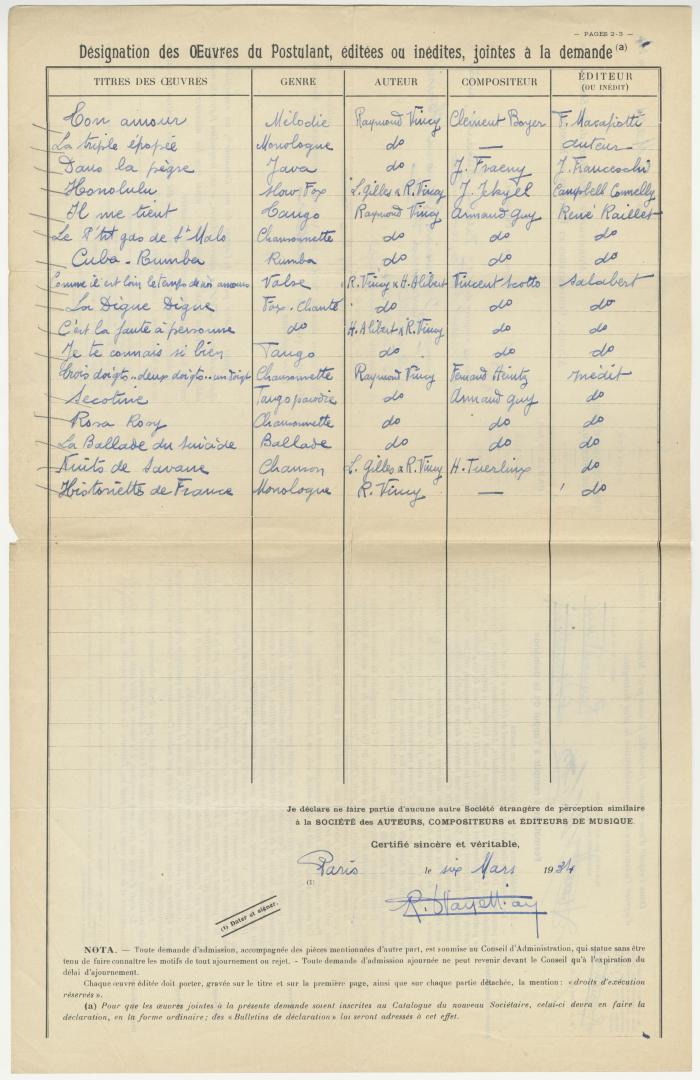 — PAGES 2-3 —
Désignation des Œuvres du Postulant, éditées ou inédites, jointes à la demande (a)
TITRES DES ŒUVRES GENRE AUTEUR COMPOSITEUR ÉDITEUR (OU INÉDIT)
Ton amour Mélodie Raymond Vincy Clément Boyer F.
La triple épopée Monologue do — auteur
Dans la pègre Java do J. J. Franceschi
Honolulu Slow Fox L. Gilles & R. Vincy J. Jekyel Campbell Connelly
Il me tient Tango Raymond Vincy Armand Guy René Raillet
Le P'tit gas de St Malo Chansonnette do do do
Cuba-Rumba Rumba do do do
Comme il est loin le temps de nos amours Valse R. Vincy & H. Alibert Vincent Scotto Salabert
La Digue Digue Fox-Chanté do do do
C'est la faute à personne do H. Alibert & R. Vincy do do
Je te connais si bien Tango do do do
Trois doigts.. deux doigts.. un doigt Chansonnette Raymond Vincy Fernand Heintz inédit
Secotine Tango parodie do Armand Guy do
Rosa Rosy Chansonnette do do do
La Ballade du suicide Ballade do do do
Nuits de Savane Chanson L. Gilles & R. Vincy H. Tuerlinx do
Historiette de France Monologue R. Vincy — do
Je déclare ne faire partie d'aucune autre Société étrangère de perception similaire
à la SOCIÉTÉ des AUTEURS, COMPOSITEURS et ÉDITEURS DE MUSIQUE.
Certifié sincère et véritable,
Paris le six Mars 1934
(1)
(1) Dater et signer.
NOTA. — Toute demande d'admission, accompagnée des pièces mentionnées d'autre part, est soumise au Conseil d'Administration, qui statue sans être
tenu de faire connaître les motifs de tout ajournement ou rejet. - Toute demande d'admission ajournée ne peut revenir devant le Conseil qu'à l'expiration du
délai d'ajournement.
Chaque œuvre éditée doit porter, gravée sur le titre et sur la première page, ainsi que sur chaque partie détachée, la mention : « droits d'exécution
réservés ».
(a) Pour que les œuvres jointes à la présente demande soient inscrites au Catalogue du nouveau Sociétaire, celui-ci devra en faire la
déclaration, en la forme ordinaire; des « Bulletins de déclaration » lui seront adressés à cet effet.